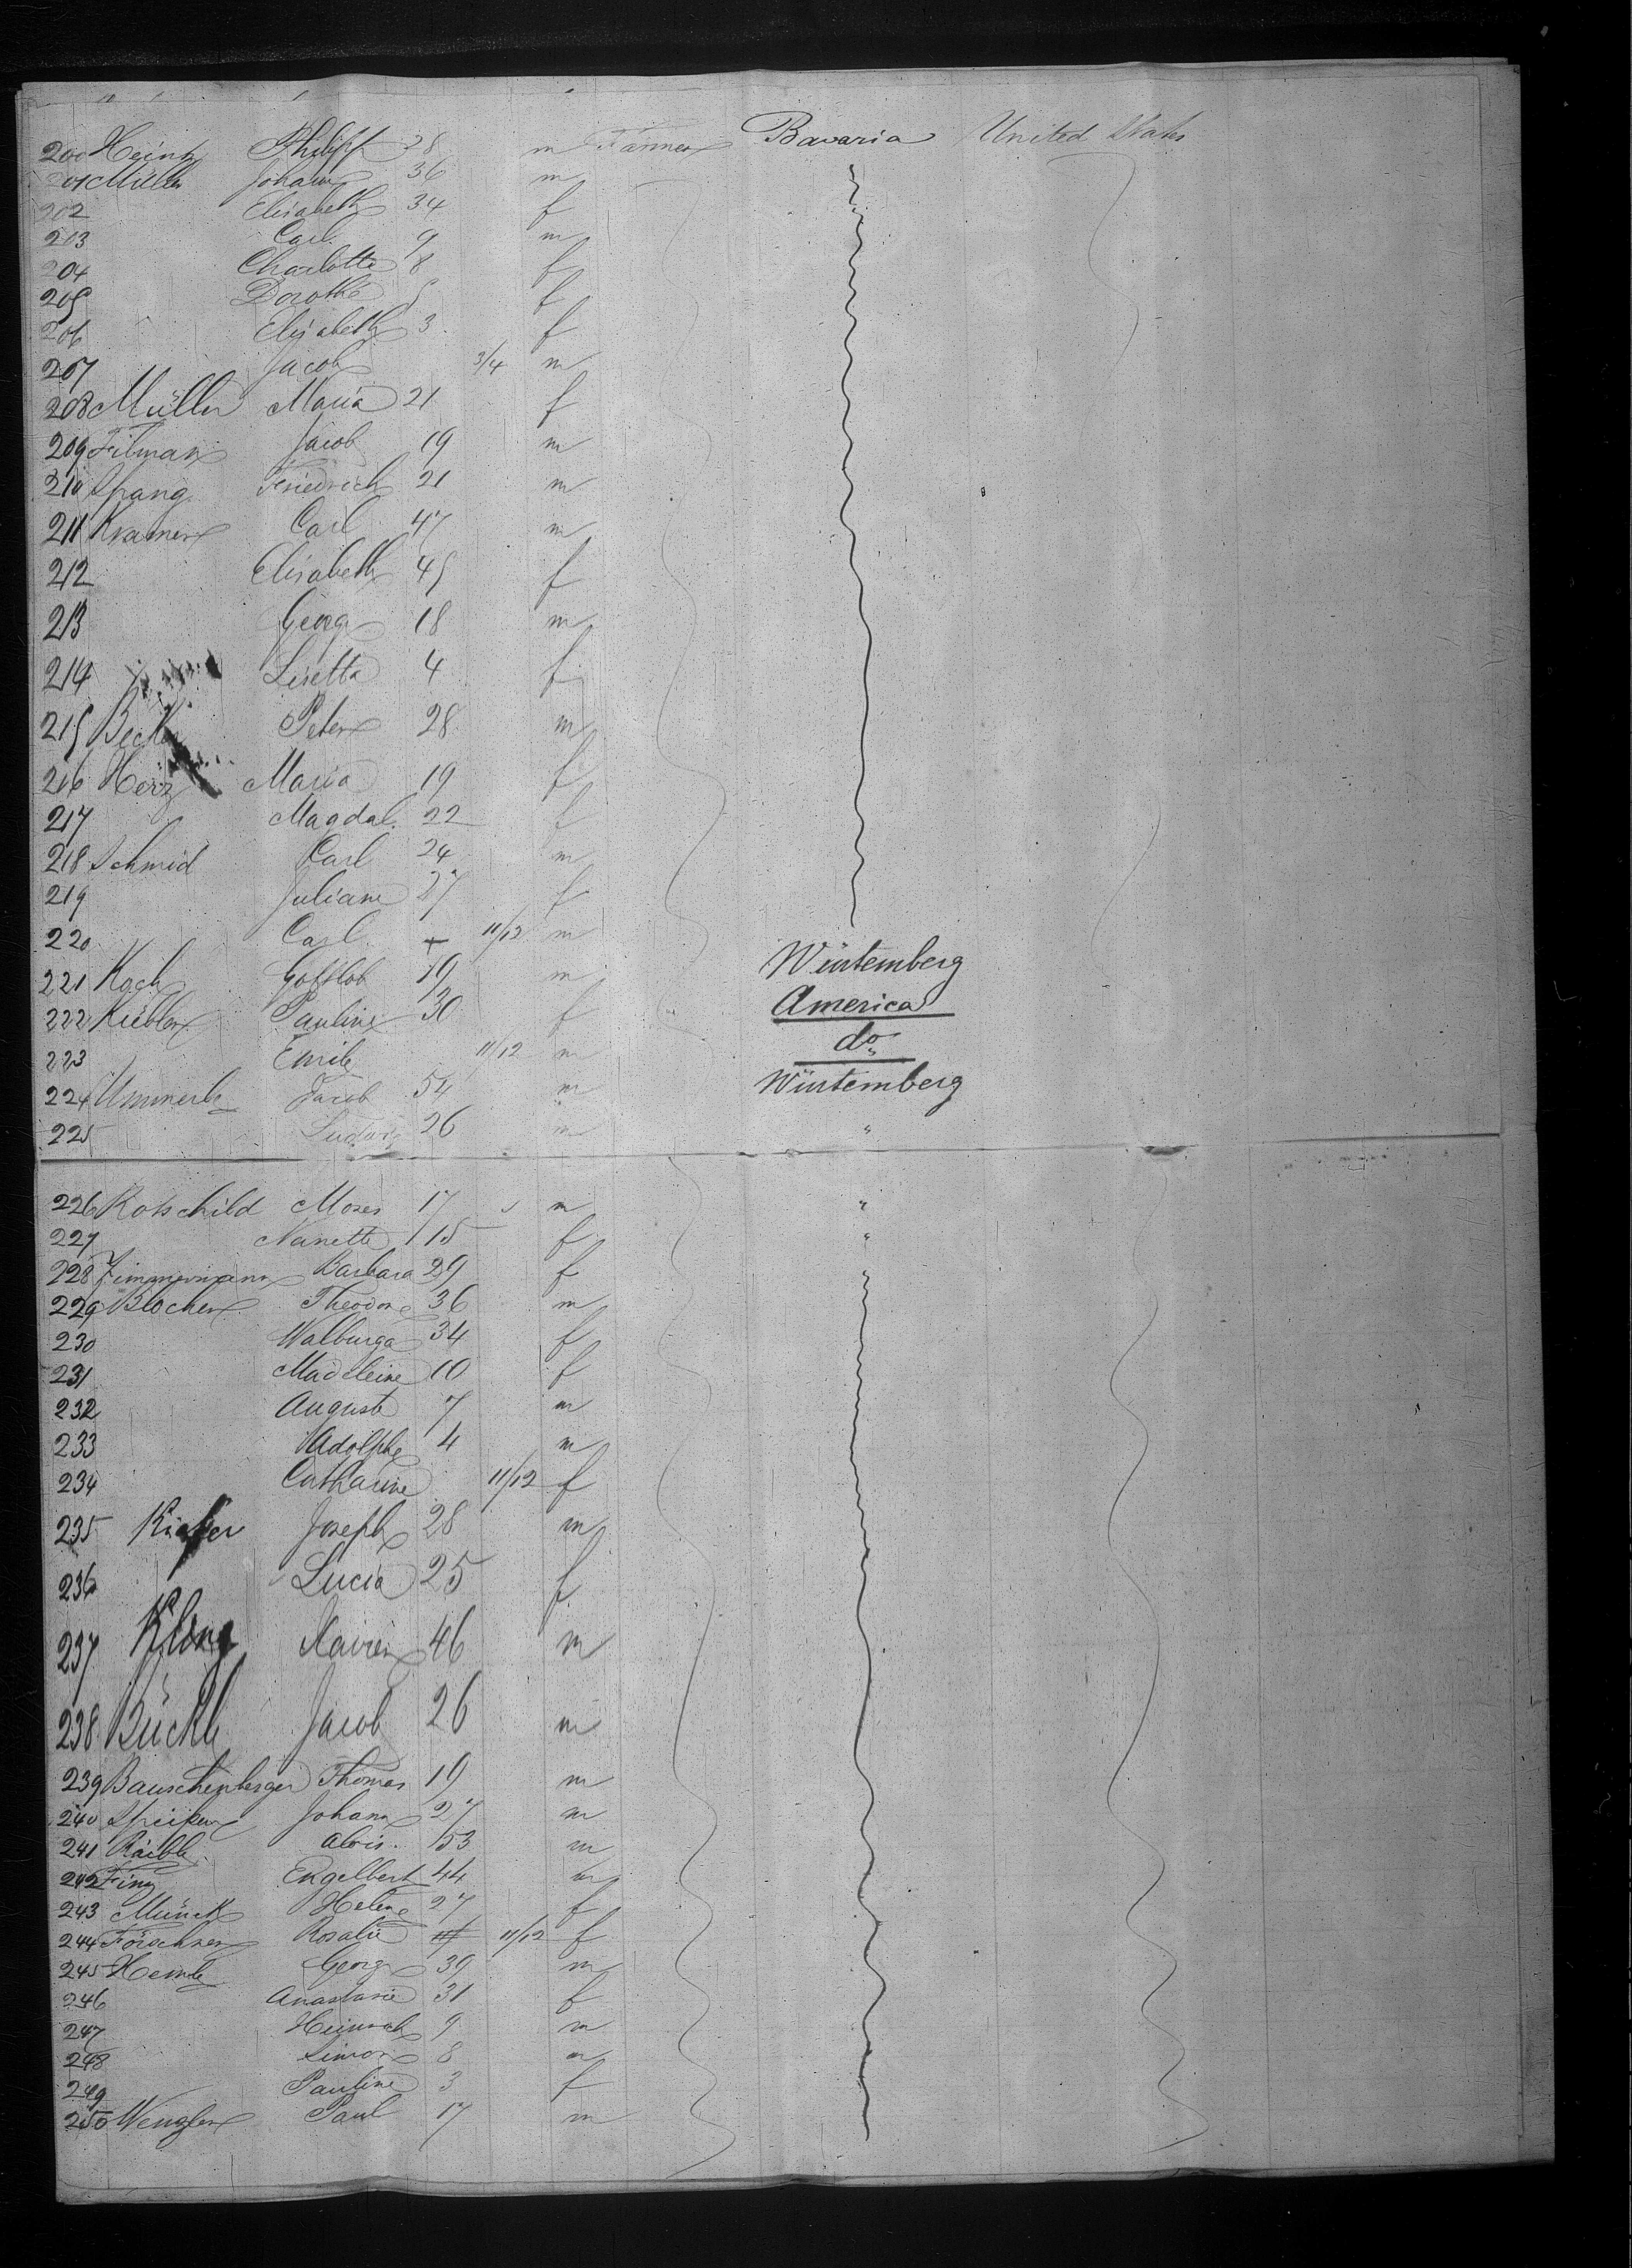 200 Heintz Philipp 28 m Farmer Bavaria United States
201 Müller Johann 36 m
202 Elisabeth 34 f
203 Carl 9 m
204 Charlotte 8 f
205 Dorothe 5 f
206 Elisabeth 3 f
207 Jacob 3/4 m
208 Müller Maria 21 f
209 Jacob 19 m
210 Spang Friedrich 21 m
211 Kramer Carl 47 m
212 Elisabeth 45 f
213 Georg 18 m
214 Lisetta 4 f
215 Becker Peter 28 m
216 Maria 19 f
217 Magdal. 22 f
218 Schmid Carl 24 m
219 Juliane 27 f
220 Carl 11/12 m
221 Koch Gottlob 19 m Würtemberg
222 Kübler Pauline 30 f America
223 Emile 11/12 m do
224 Ummerle Jacob 54 m Würtemberg
225 Ludwig 26 m "
226 Rotschild Moses 17 m "
227 Nanette 15 f "
228 Zimmermann Barbara 29 f
229 Blocher Theodore 36 m
230 Walburga 34 f
231 Madeleine 10 f
232 Auguste 7 m
233 Adolphe 4 m
234 Catharine 11/12 f
235 Kiefer Joseph 28 m
236 Lucia 25 f
237 Klong Xavier 46 m
238 Bückle Jacob 26 m
239 Bauschenberger Thomas 19 m
240 Johann 27 m
241 Raible Alois. 53 m
242 Engelbert 44 m
243 Münch Helene 27 f
244 Förschner Rosalie 11/12 f
245 Hemle Georg 39 m
246 Anastasie 31 f
247 Heinrich 9 m
248 Simon 8 m
249 Pauline 3 f
250 Wengler Paul 17 m